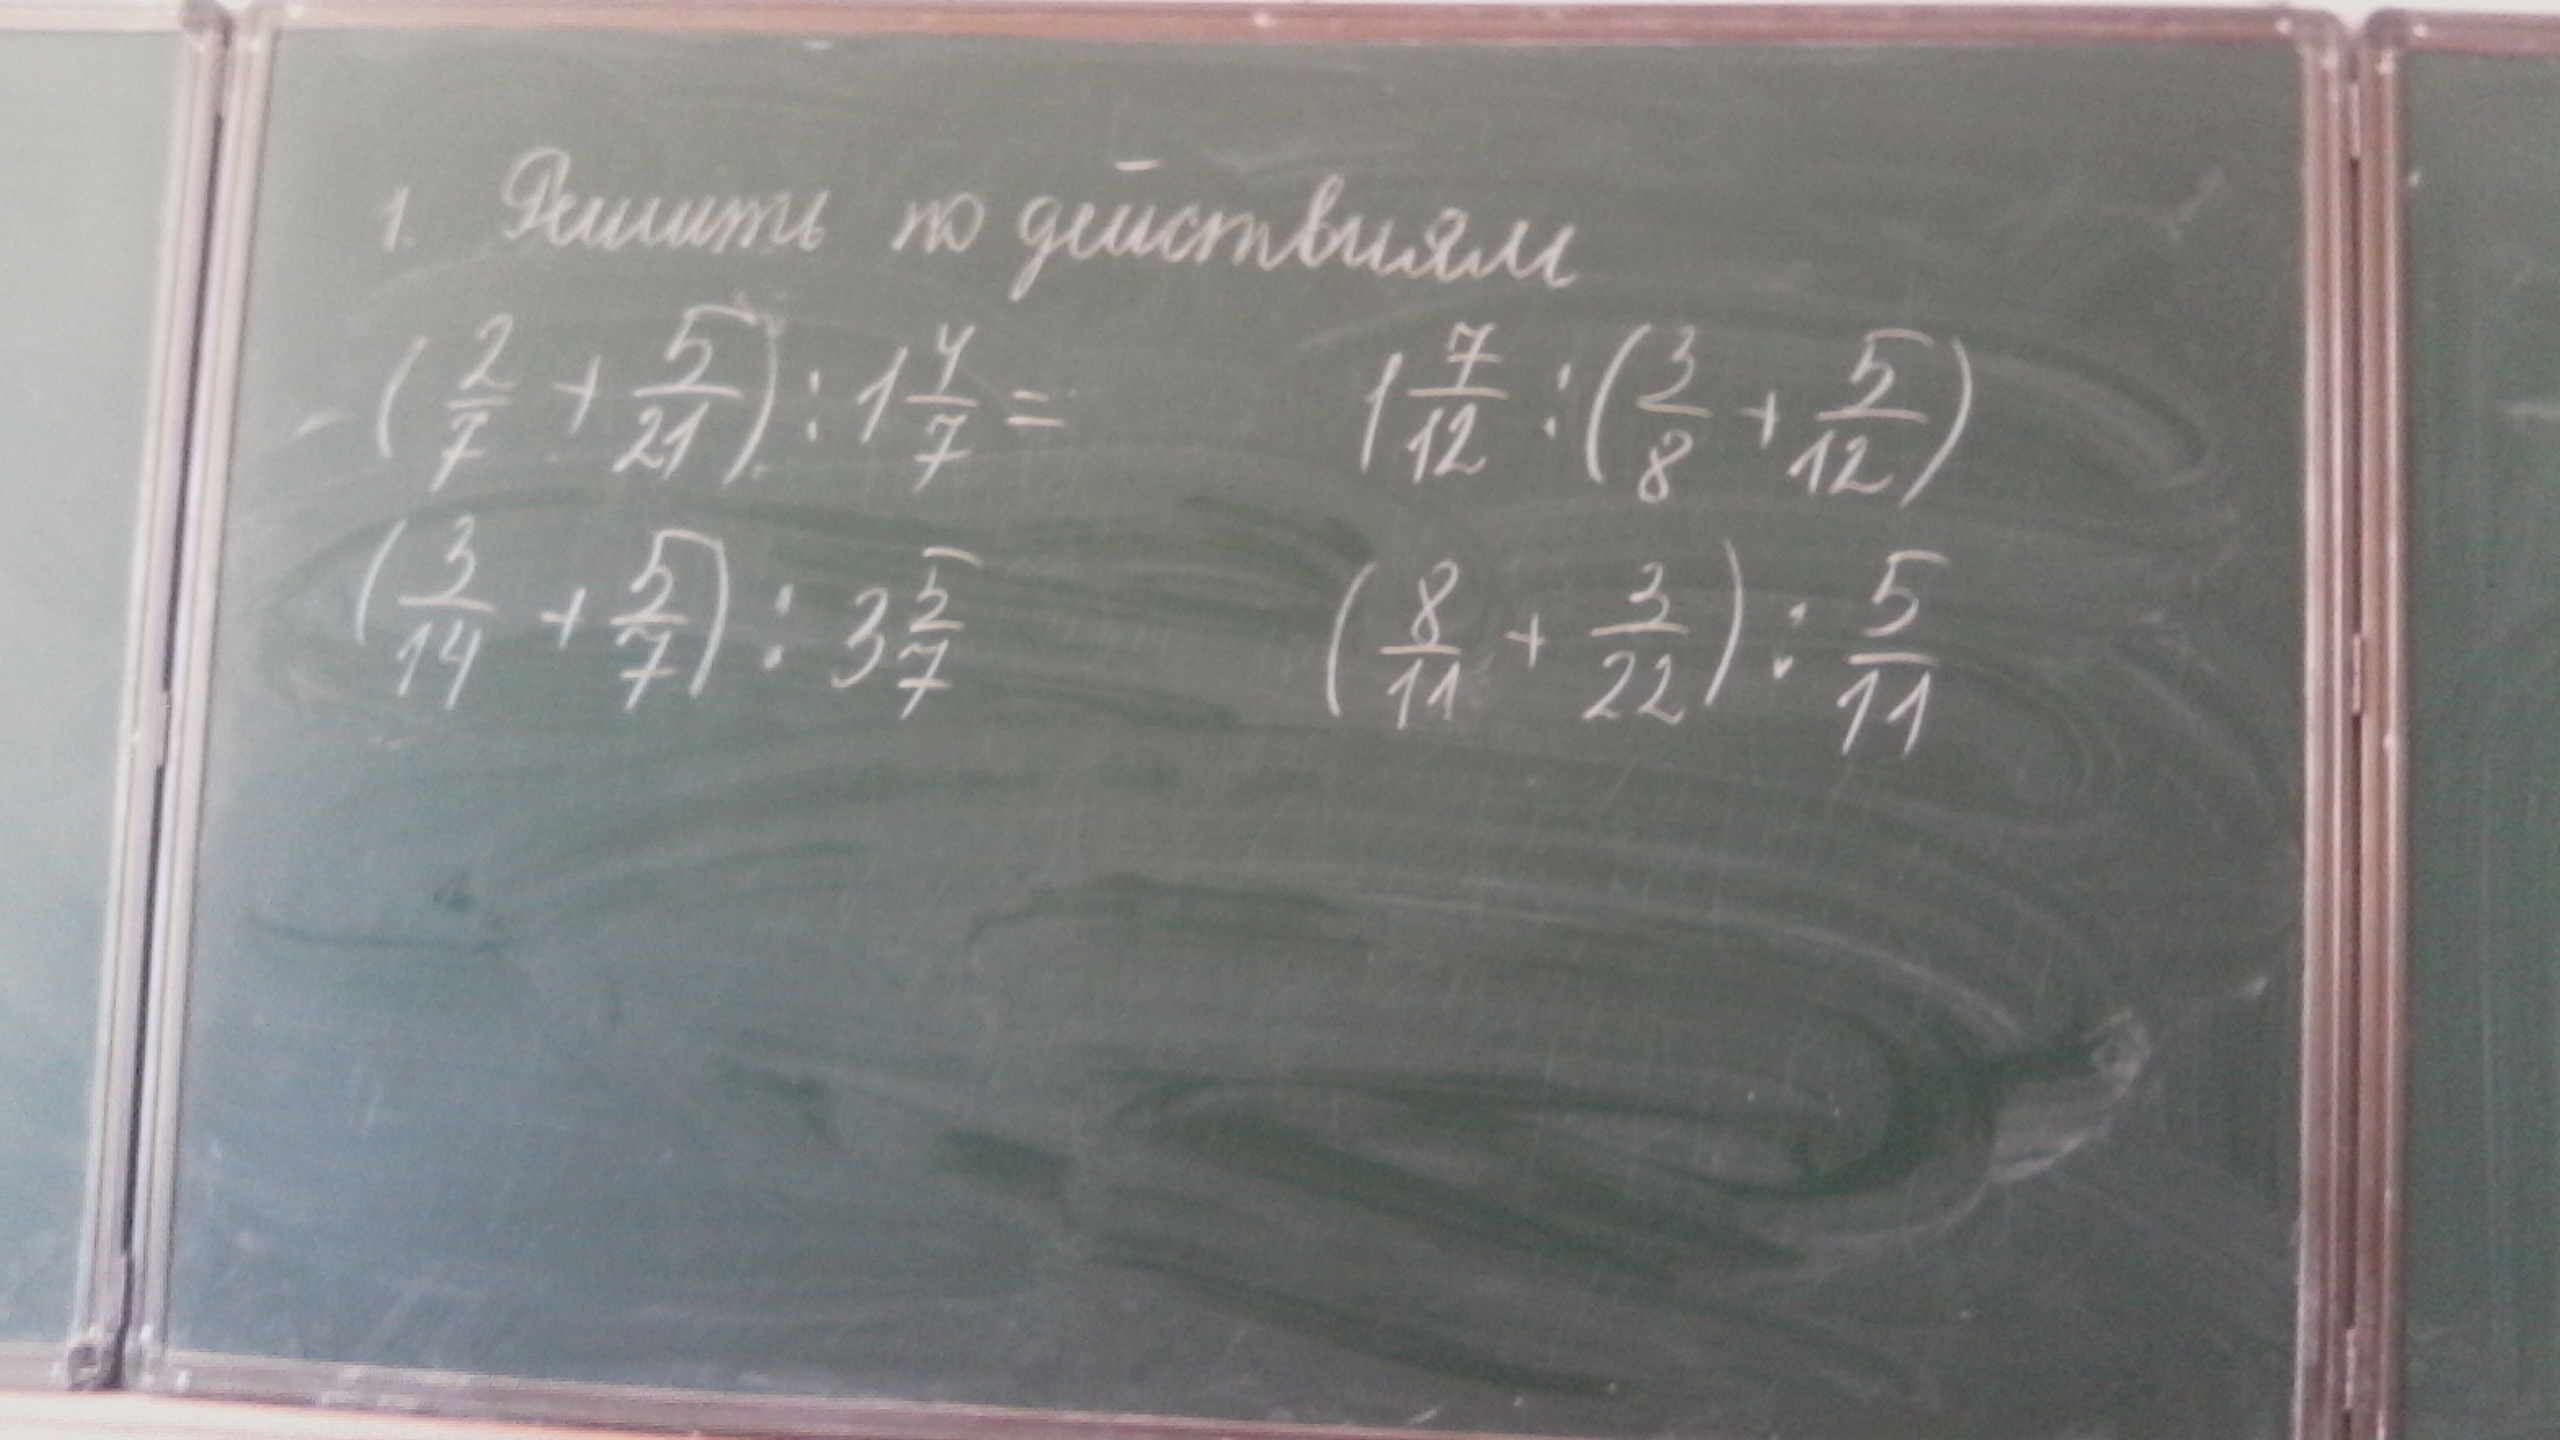 1. Решить по действиям
(2/7 + 5/21) : 1 4/7 = 1 7/12 : (3/8 + 5/12)
(3/14 + 5/7) : 3 5/7 (8/11 + 3/22) : 5/11